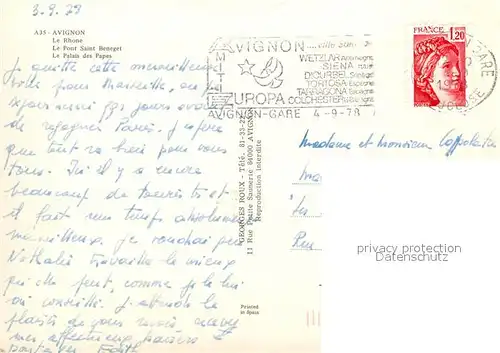 3.9.78
A35 - AVIGNON
Le Rhone
Le Pont Saint Benezet
Le Palais des Papes
Je quitte cette merveilleuse
ville pour Marseille, où je
séjournerai jours avant
de regagner Paris. J'espère
que tout va bien pour vous
tous. Ici il y a encore
beaucoup de touristes et
il fait un temps absolument
merveilleux. Je voudrais que
Nathalie travaille le mieux
qu'elle peut, comme je le lui
ai conseillé. J'attends le
plaisir de vous revoir, croyez
affectueux baisers
Edith
GEORGES ROUX - Tél. 81-33-22
11 Rue Petite Saunerie 84000 AVIGNON
Reproduction interdite
Printed
in Spain
AVIGNON.....ville sur
AMITIE
WETZLAR Allemagne
SIENA Italie
DIOURBEL Sénégal
TORTOSA Espagne
TARRAGONA Espagne
EUROPA COLCHESTER Gde Bretagne
AVIGNON-GARE 4-9-78
FRANCE 1,20
GARE
VAUCLUSE
Madame et Monsieur
privacy protection
Datenschutz